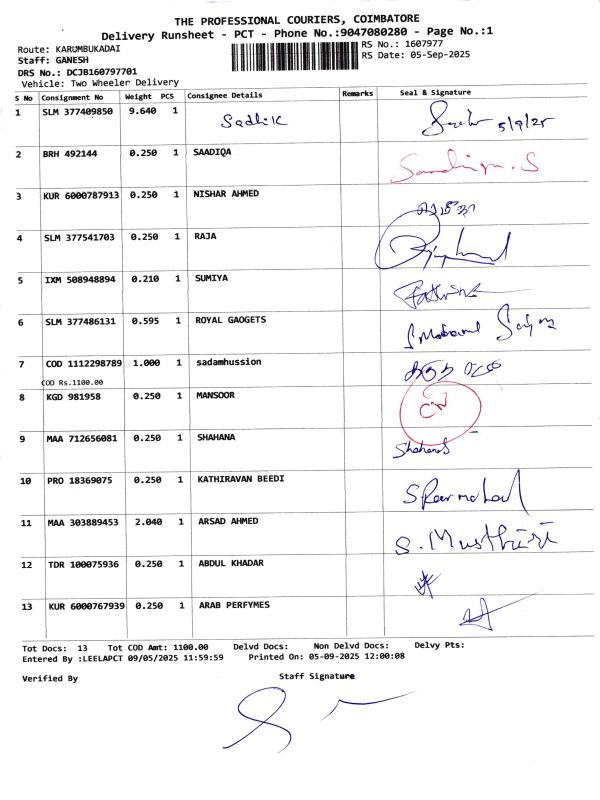 THE PROFESSIONAL COURIERS, COIMBATORE
Delivery Runsheet - PCT - Phone No.:9047080280 - Page No.:1
Route: KARUMBUKADAI
RS No.: 1607977
Staff: GANESH
RS Date: 05-Sep-2025
DRS No.: DCJB160797701
Vehicle: Two Wheeler Delivery
S No Consignment No Weight PCS Consignee Details Remarks Seal & Signature
1 SLM 377409850 9.640 1 Sadhik 5/9/25
2 BRH 492144 0.250 1 SAADIQA
3 KUR 6000787913 0.250 1 NISHAR AHMED
4 SLM 377541703 0.250 1 RAJA
5 IXM 508948894 0.210 1 SUMIYA
6 SLM 377486131 0.595 1 ROYAL GAOGETS
7 COD 1112298789 1.000 1 sadamhussion
COD Rs.1100.00
8 KGD 981958 0.250 1 MANSOOR
9 MAA 712656081 0.250 1 SHAHANA Shahana
10 PRO 18369075 0.250 1 KATHIRAVAN BEEDI
11 MAA 303889453 2.040 1 ARSAD AHMED
12 TDR 100075936 0.250 1 ABDUL KHADAR
13 KUR 6000767939 0.250 1 ARAB PERFYMES
Tot Docs: 13 Tot COD Amt: 1100.00 Delvd Docs: Non Delvd Docs: Delvy Pts:
Entered By :LEELAPCT 09/05/2025 11:59:59 Printed On: 05-09-2025 12:00:08
Verified By Staff Signature